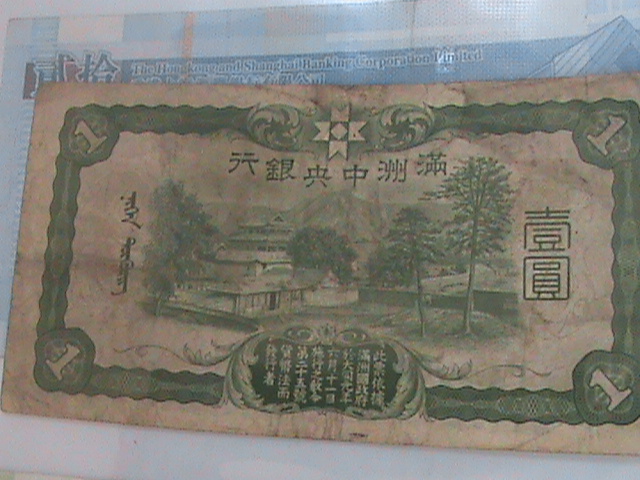 貳拾
The Hongkong and Shanghai Banking Corporation Limited
1
1
滿洲中央銀行
壹圓
此票依據
滿洲國政府
於大同元年
六月十一日
施行教令
第二十五號
貨幣法而
發行者
1
1